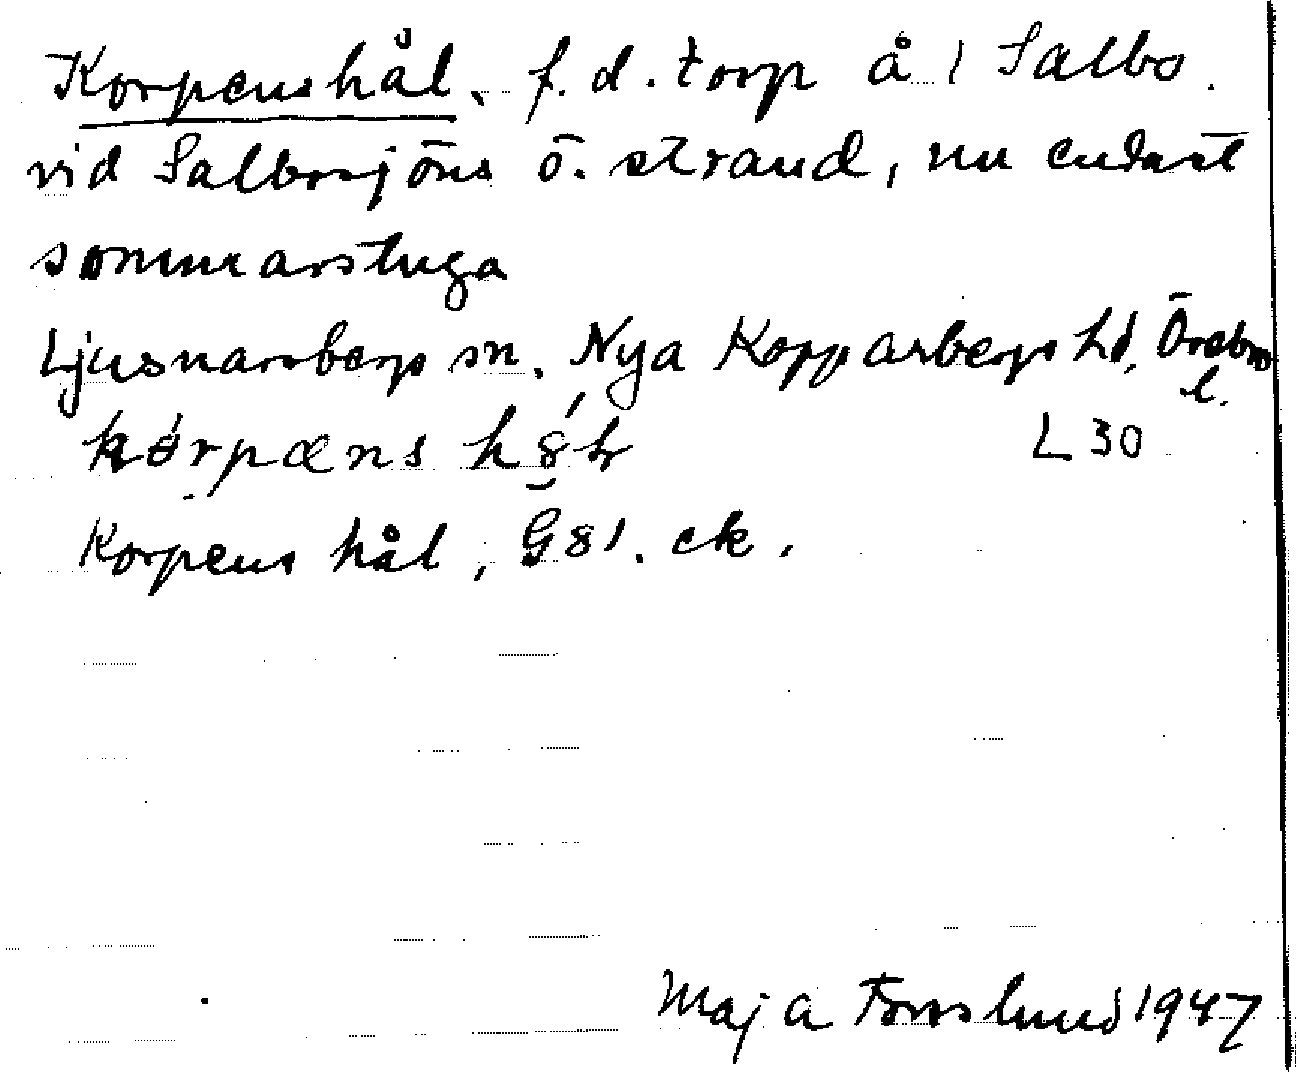 Korpenshål. f.d. torp å 1 Salbo.
vid Salbosjöns ö. strand, nu endast
sommarstuga
Ljusnarsbergs sn. Nya Kopparbergs hd, Örebro
l.
L 30
Korpens hål, G81. ek.
Maja Forslund 1947